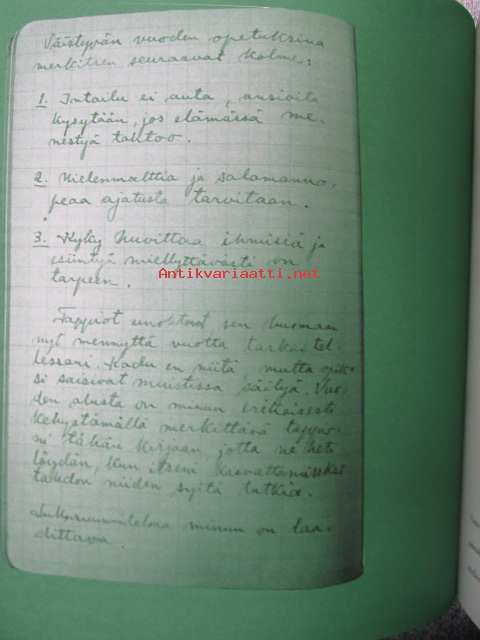 Väistyvän vuoden opetuksina
merkitsen seuraavat kolme:
1. Intailu ei auta, ansioita
kysytään, jos elämässä me-
nestyä tahtoo.
2. Mielenmalttia ja salamanno-
peaa ajatusta tarvitaan.
3. Kyky huvittaa ihmisiä ja
esiintyä miellyttävästi on
tarpeen.
Antikvariaatti.net
Tappiot unohtuvat, sen huomaan
nyt mennyttä vuotta tarkastel-
lessani. Kadu en niitä, mutta opik-
si saisivat muistissa säilyä. Vuo-
den alusta on minun erikoisesti
kehystämällä merkittävä tappio-
ni tähän kirjaan, jotta ne heti
löydän, kun itseni kasvattamiseksi
tahdon niiden syitä tutkia.
minun on laa-
dittava.